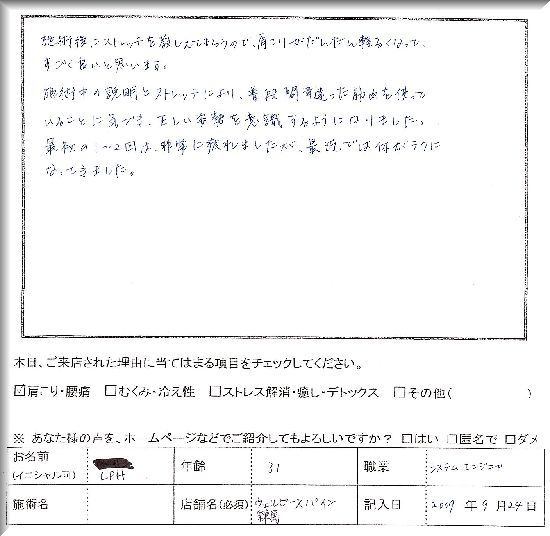 施術後にストレッチを教えてもらうので、肩こりがだんだん軽くなって、
すごく良いと思います。
施術中の説明とストレッチにより、普段間違った筋肉を使って
いることに気づき、正しい姿勢を意識するようになりました。
最初の1〜2回は、非常に疲れましたが、最近では体がラクに
なってきました。
本日、ご来店された理由に当てはまる項目をチェックしてください。
☑肩こり・腰痛 □むくみ・冷え性 □ストレス解消・癒し・デトックス □その他( )
※ あなた様の声を、ホームページなどでご紹介してもよろしいですか? □はい □匿名で □ダメ
お名前 (イニシャル可) LPH 年齢 31 職業 システムエンジニア
施術名 店舗名(必須) ウェルビースパイン 記入日 2009 年 9 月 24 日